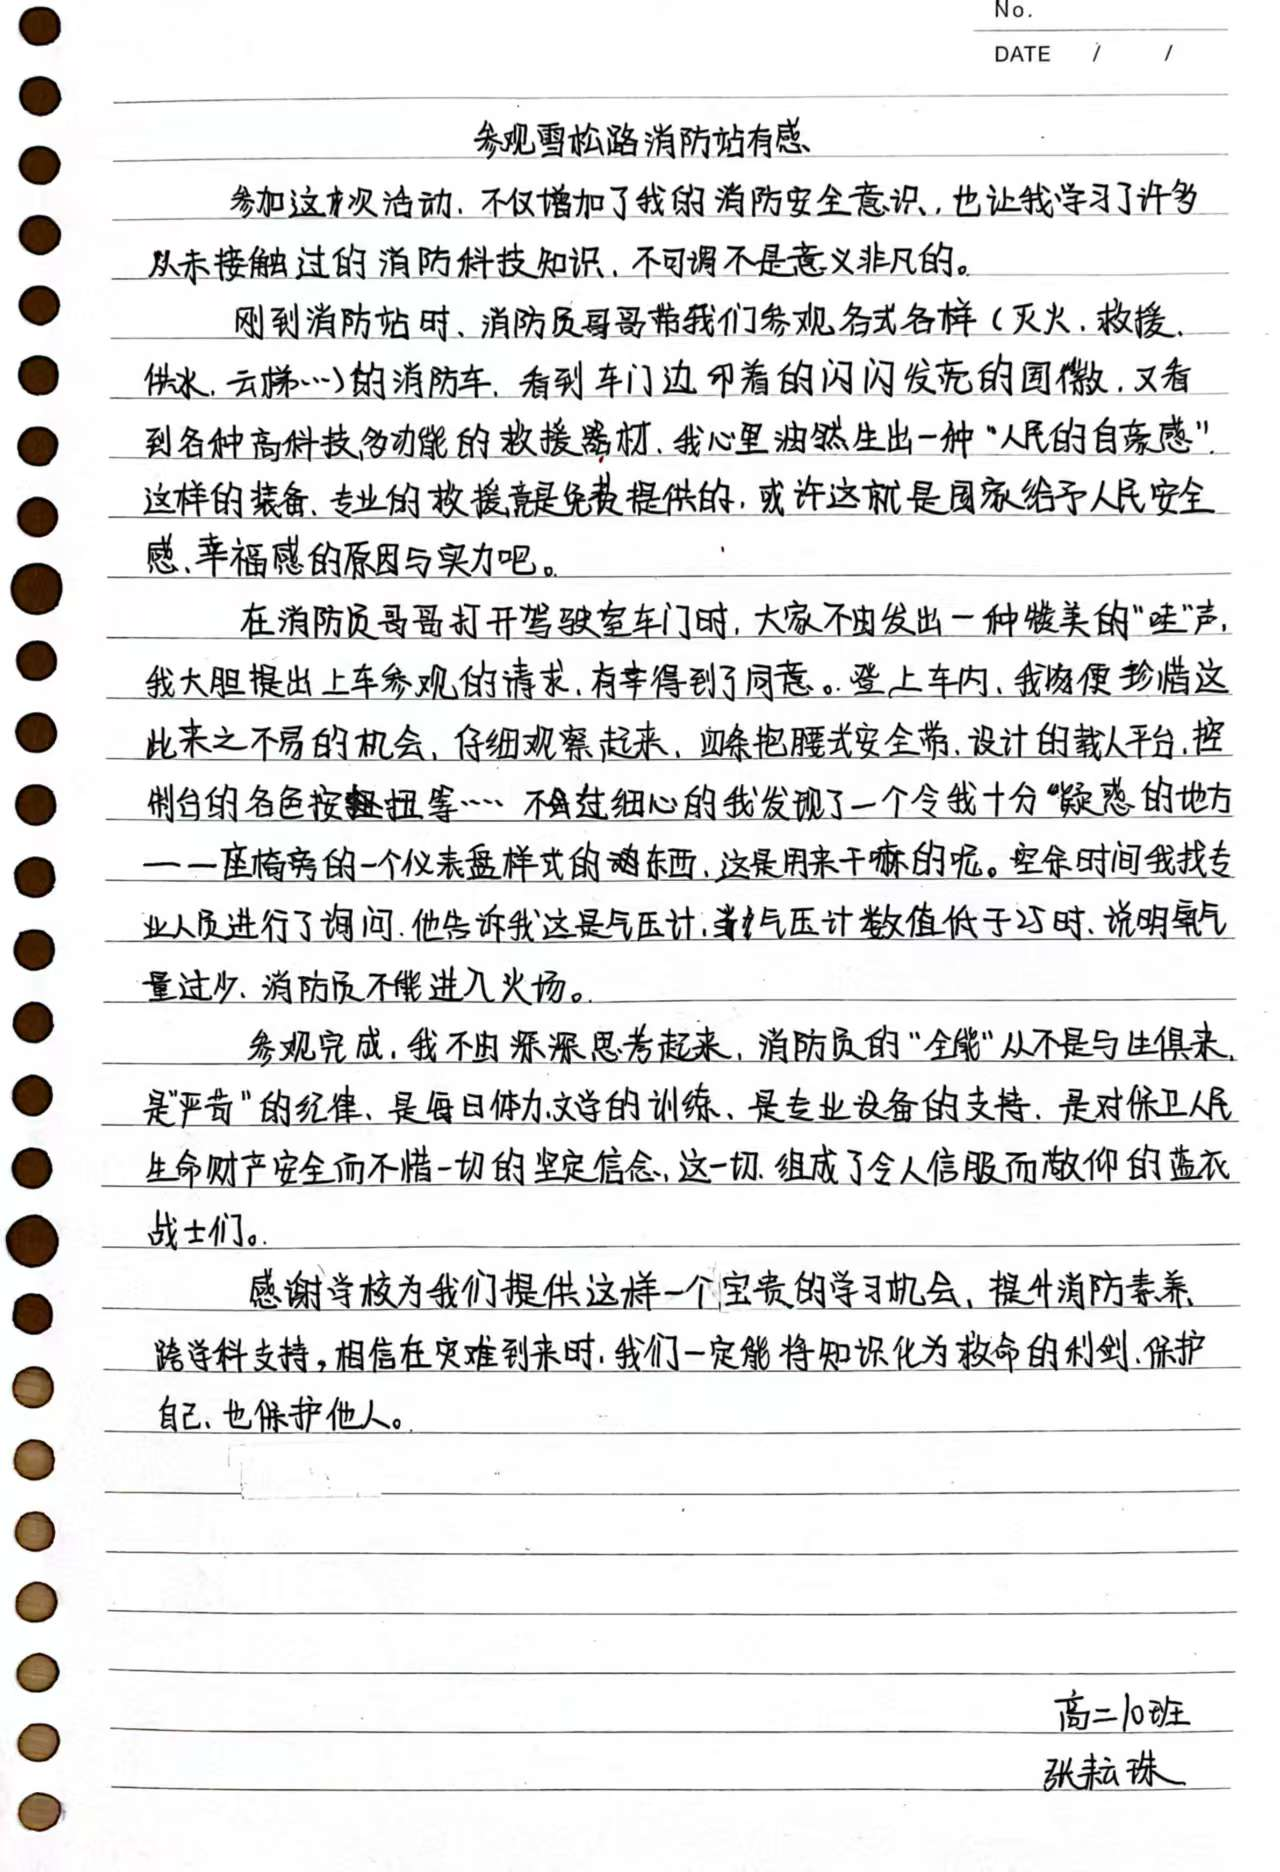 No.
DATE / /
参观雪松路消防站有感
参加这次活动，不仅增加了我的消防安全意识，也让我学习了许多
从未接触过的消防科技知识，不可谓不是意义非凡的。
刚到消防站时，消防员哥哥带我们参观各式各样（灭火，救援，
供水，云梯…）的消防车，看到车门边印着的闪闪发亮的国徽，又看
到各种高科技，多功能的救援器材，我心里油然生出一种“人民的自豪感”，
这样的装备、专业的救援竟是免费提供的，或许这就是国家给予人民安全
感、幸福感的原因与实力吧。
在消防员哥哥打开驾驶室车门时，大家不由发出一种赞美的“哇”声，
我大胆提出上车参观的请求，有幸得到了同意。登上车内，我便珍惜这
此来之不易的机会，仔细观察起来，四条抱腰式安全带，设计的载人平台，控
制台的各色按扭等…… 不过细心的我发现了一个令我十分疑惑的地方
——座椅旁的一个仪表盘样式的东西，这是用来干嘛的呢。空余时间我找专
业人员进行了询问，他告诉我这是气压计，当气压计数值低于25时，说明氧气
量过少，消防员不能进入火场。
参观完成，我不由深深思考起来，消防员的“全能”从不是与生俱来，
是“严苛”的纪律、是每日体力，文学的训练、是专业设备的支持，是对保卫人民
生命财产安全而不惜一切的坚定信念，这一切，组成了令人信服而敬仰的蓝衣
战士们。
感谢学校为我们提供这样一个宝贵的学习机会，提升消防素养，
跨学科支持，相信在灾难到来时，我们一定能将知识化为救命的利剑，保护
自己，也保护他人。
高二10班
张耘珠